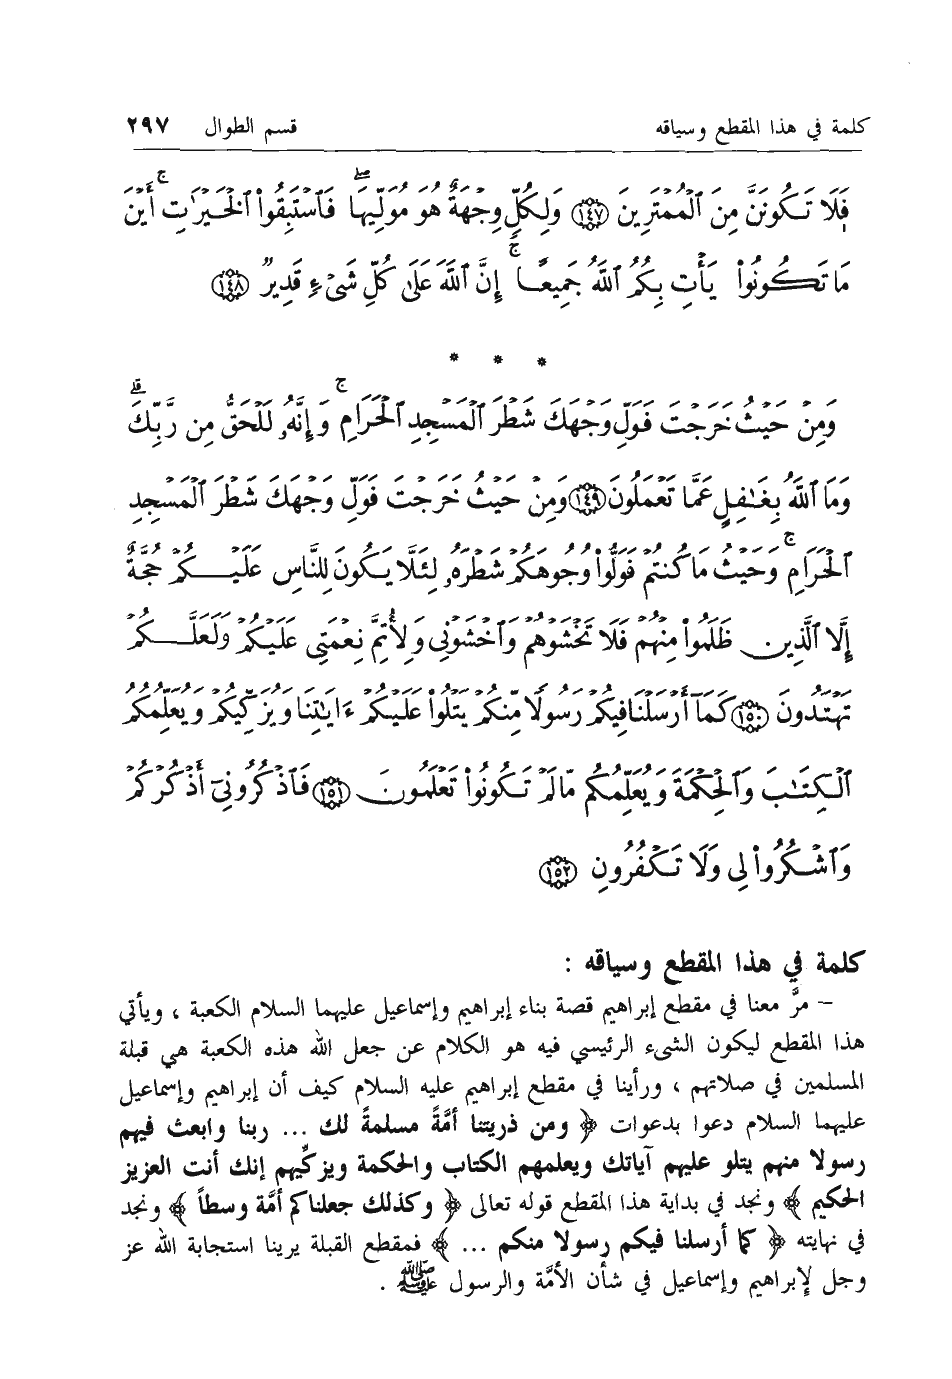 كلمة في هذا المقطع وسياقه قسم الطوال ٢٩٧
فَلَا تَكُونَنَّ مِنَ ٱلْمُمْتَرِينَ ﴿١٤٧﴾ وَلِكُلٍّ وِجْهَةٌ هُوَ مُوَلِّيهَا ۖ فَٱسْتَبِقُوا۟ ٱلْخَيْرَٰتِ ۚ أَيْنَ
مَا تَكُونُوا۟ يَأْتِ بِكُمُ ٱللَّهُ جَمِيعًا ۚ إِنَّ ٱللَّهَ عَلَىٰ كُلِّ شَىْءٍ قَدِيرٌ ﴿١٤٨﴾
* * *
وَمِنْ حَيْثُ خَرَجْتَ فَوَلِّ وَجْهَكَ شَطْرَ ٱلْمَسْجِدِ ٱلْحَرَامِ ۚ وَإِنَّهُۥ لَلْحَقُّ مِن رَّبِّكَ ۗ
وَمَا ٱللَّهُ بِغَٰفِلٍ عَمَّا تَعْمَلُونَ ﴿١٤٩﴾ وَمِنْ حَيْثُ خَرَجْتَ فَوَلِّ وَجْهَكَ شَطْرَ ٱلْمَسْجِدِ
ٱلْحَرَامِ ۚ وَحَيْثُ مَا كُنتُمْ فَوَلُّوا۟ وُجُوهَكُمْ شَطْرَهُۥ لِئَلَّا يَكُونَ لِلنَّاسِ عَلَيْكُمْ حُجَّةٌ
إِلَّا ٱلَّذِينَ ظَلَمُوا۟ مِنْهُمْ فَلَا تَخْشَوْهُمْ وَٱخْشَوْنِى وَلِأُتِمَّ نِعْمَتِى عَلَيْكُمْ وَلَعَلَّكُمْ
تَهْتَدُونَ ﴿١٥٠﴾ كَمَآ أَرْسَلْنَا فِيكُمْ رَسُولًا مِّنكُمْ يَتْلُوا۟ عَلَيْكُمْ ءَايَٰتِنَا وَيُزَكِّيكُمْ وَيُعَلِّمُكُمُ
ٱلْكِتَٰبَ وَٱلْحِكْمَةَ وَيُعَلِّمُكُم مَّا لَمْ تَكُونُوا۟ تَعْلَمُونَ ﴿١٥١﴾ فَٱذْكُرُونِىٓ أَذْكُرْكُمْ
وَٱشْكُرُوا۟ لِى وَلَا تَكْفُرُونِ ﴿١٥٢﴾
كلمة في هذا المقطع وسياقه :
– مرَّ معنا في مقطع إبراهيم قصة بناء إبراهيم وإسماعيل عليهما السلام الكعبة ، ويأتي
هذا المقطع ليكون الشيء الرئيسي فيه هو الكلام عن جعل الله هذه الكعبة هي قبلة
المسلمين في صلاتهم ، ورأينا في مقطع إبراهيم عليه السلام كيف أن إبراهيم وإسماعيل
عليهما السلام دعوا بدعوات ﴿ ومن ذريتنا أمَّةً مسلمةً لك ... ربنا وابعث فيهم
رسولا منهم يتلو عليهم آياتك ويعلمهم الكتاب والحكمة ويزكِّيهم إنك أنت العزيز
الحكيم ﴾ ونجد في بداية هذا المقطع قوله تعالى ﴿ وكذلك جعلناكم أمَّة وسطاً ﴾ ونجد
في نهايته ﴿ كما أرسلنا فيكم رسولا منكم ... ﴾ فمقطع القبلة يرينا استجابة الله عز
وجل لإبراهيم وإسماعيل في شأن الأمَّة والرسول ﷺ .